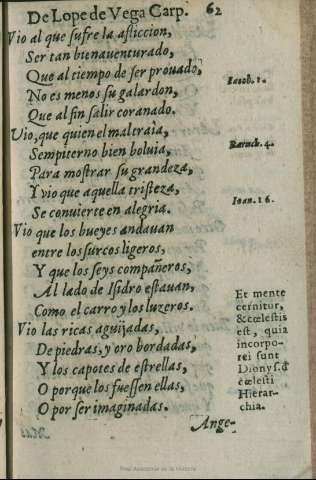 De Lope de Vega Carp. 62
Vio al que sufre la afliccion,
Ser tan bienauenturado,
Que al tiempo de ser prouado,
Iacob. 1.
No es menos su galardon,
Que al fin salir coranado.
Vio, que quien el mal traìa,
Sempiterno bien boluia,
Baruch. 4.
Para mostrar su grandeza,
Y vio que aquella tristeza,
Ioan. 16.
Se conuierte en alegria.
Vio que los bueyes andauan
entre los surcos ligeros,
Y que los seys compañeros,
Al lado de Isidro estauan,
Como el carro y los luzeros.
Vio las ricas agüijadas,
De piedras, y oro bordadas,
Y los capotes de estrellas,
O porque los fuessen ellas,
O por ser imaginadas.
Et mente
cernitur,
& cœlestis
est, quia
incorpo-
rei sunt
Dionys. d̃
cœlesti
Hierar-
chia.
Ange-
Real Academia de la Historia